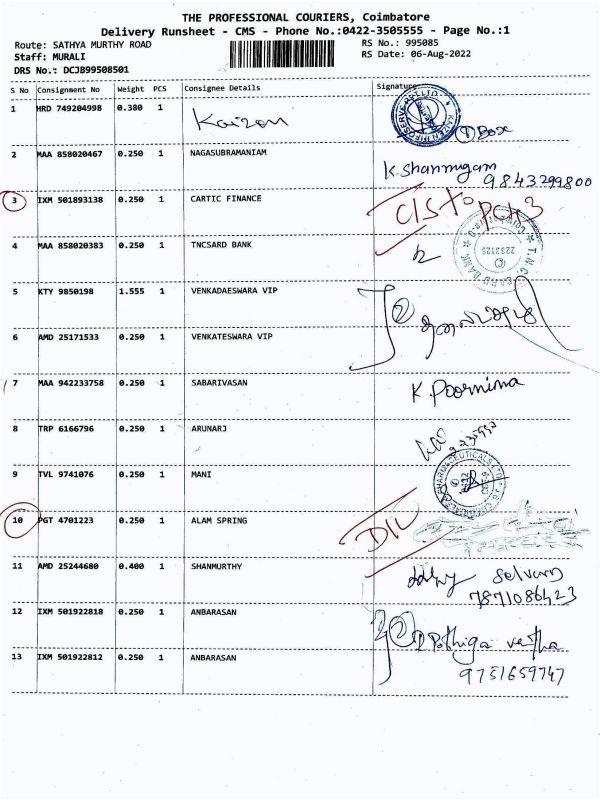 THE PROFESSIONAL COURIERS, Coimbatore
Delivery Runsheet - CMS - Phone No.:0422-3505555 - Page No.:1
Route: SATHYA MURTHY ROAD RS No.: 995085
Staff: MURALI RS Date: 06-Aug-2022
DRS No.: DCJB99508501
S No Consignment No Weight PCS Consignee Details Signature
1 HRD 749204998 0.380 1 Kaizen ① Box
2 MAA 858020467 0.250 1 NAGASUBRAMANIAM K. Shanmugam
9843299800
3 IXM 501893138 0.250 1 CARTIC FINANCE
4 MAA 858020383 0.250 1 TNCSARD BANK
5 KTY 9850198 1.555 1 VENKADAESWARA VIP
6 AMD 25171533 0.250 1 VENKATESWARA VIP
7 MAA 942233758 0.250 1 SABARIVASAN K. Poornima
8 TRP 6166796 0.250 1 ARUNARJ
9 TVL 9741076 0.250 1 MANI
10 PGT 4701223 0.250 1 ALAM SPRING D/L
11 AMD 25244680 0.400 1 SHANMURTHY Selvam
7871086423
12 IXM 501922818 0.250 1 ANBARASAN
13 IXM 501922812 0.250 1 ANBARASAN 9751659747